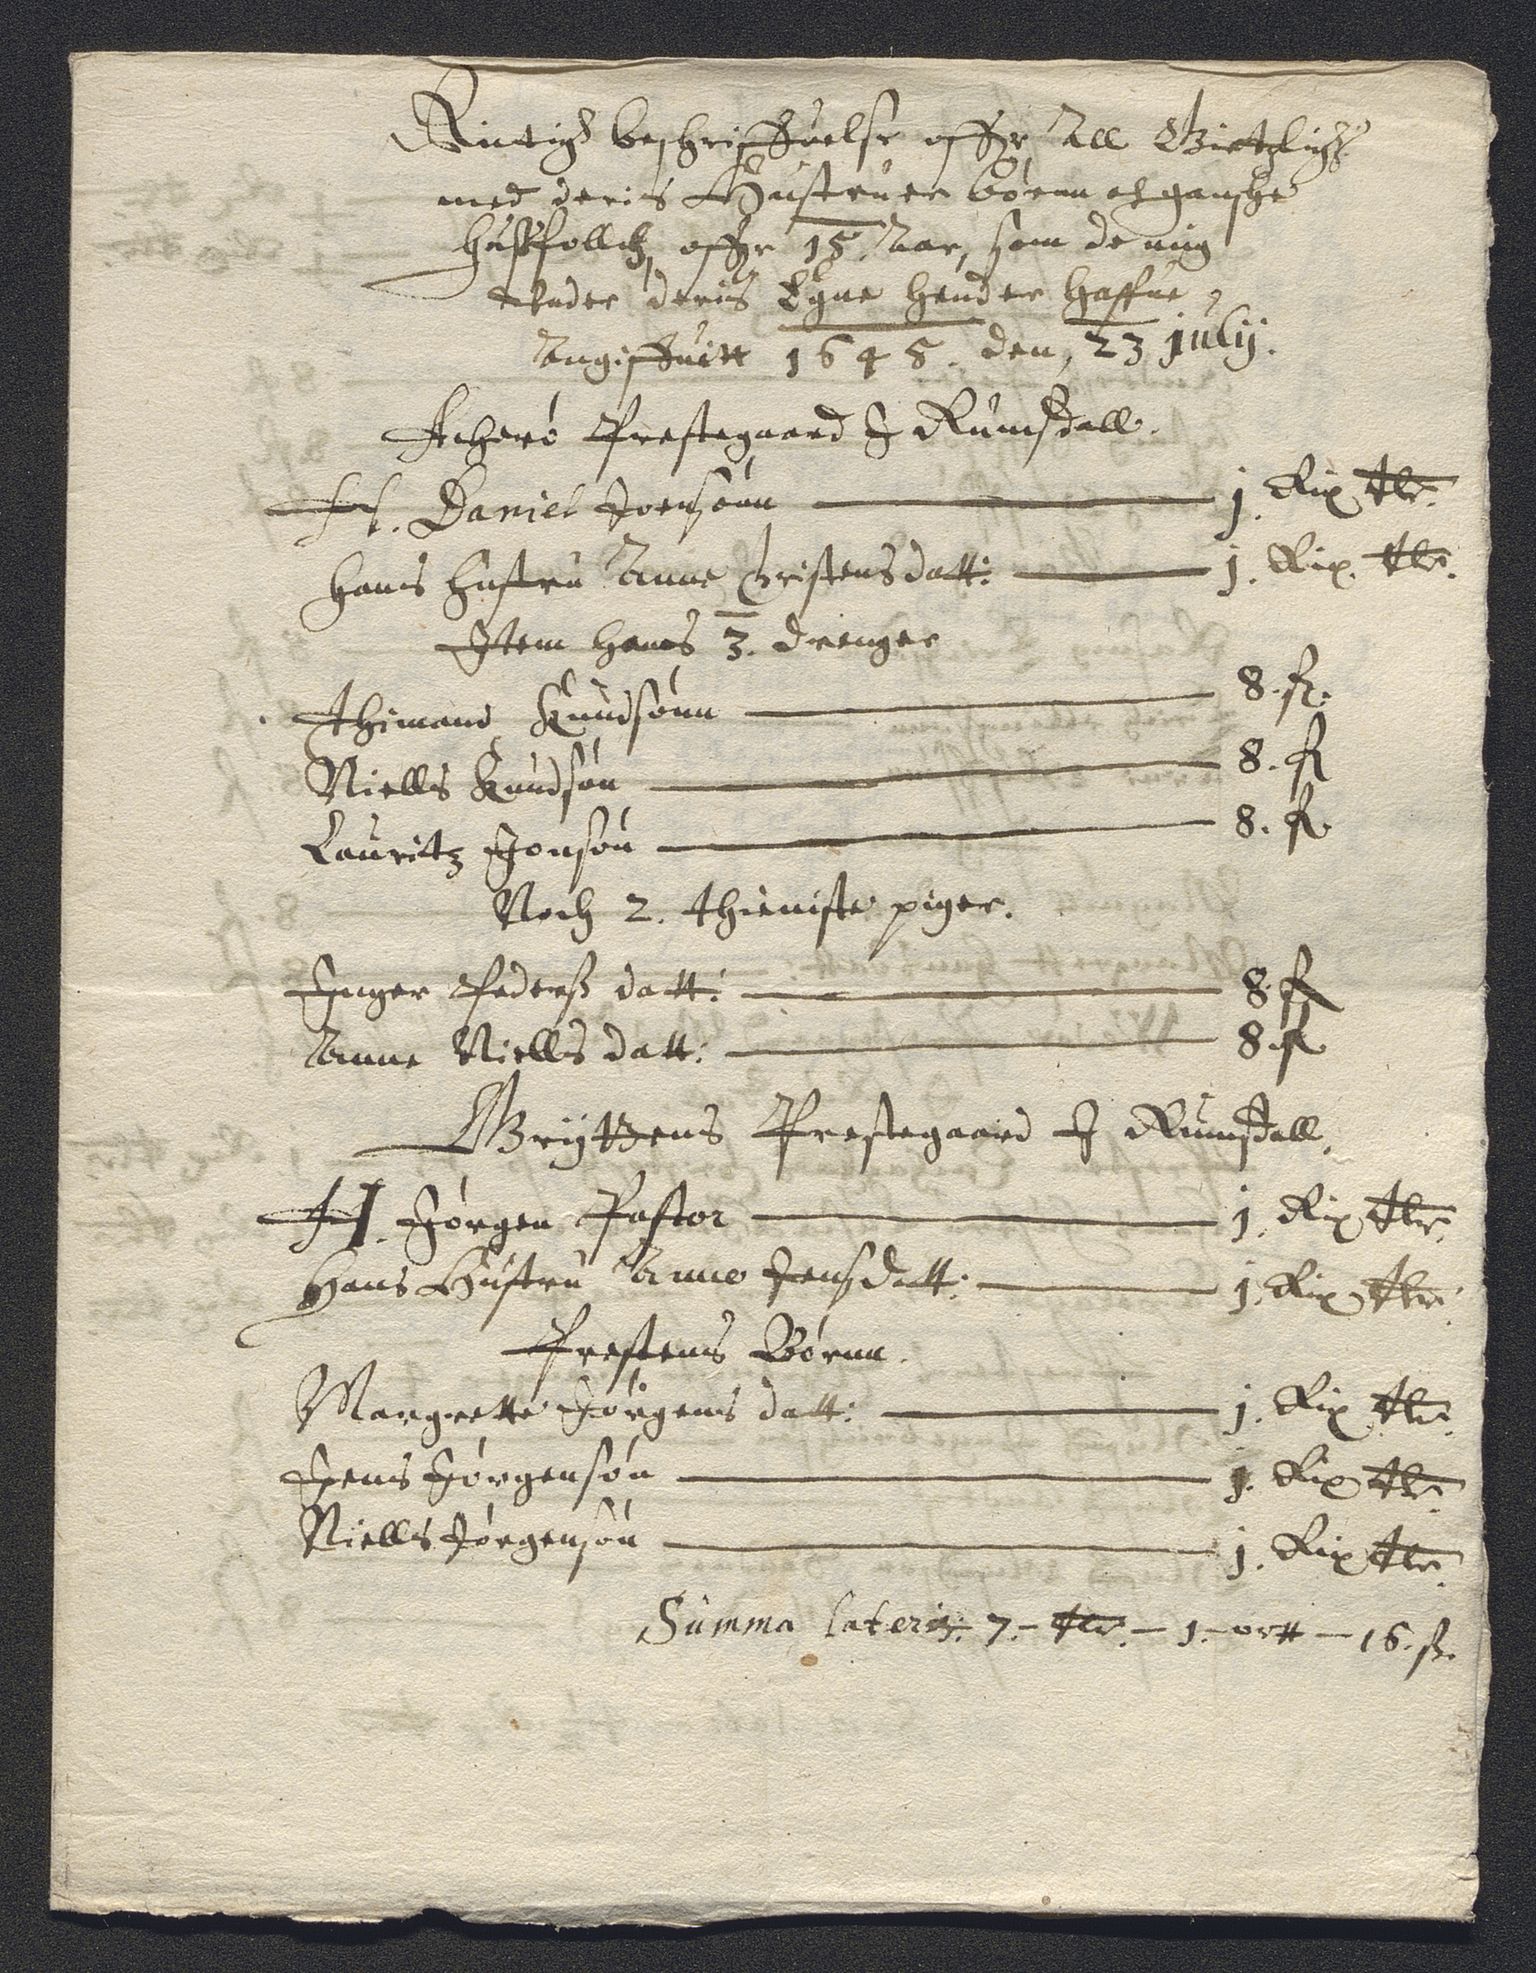 Rictigh beschriffuelse offuer All Giestligh
med deris Hustruer børnn och ganske
hussfolck, offuer 15 Aar, som de mig
Under deris Egne hender haffue,
Angiffuitt 1645. den, 23 julij.
Acherø Prestegaard J Rumsdall.
H. Daniel Joensønn — 1. Rix dlr.
Hans Hustru Anne Christensdatt: — 1. Rix. dlr.
Item hans 3. drenger
Thimand Knudsønn — 8. ß.
Niells Knudsøn — 8. ß
Lauritz Jonsøn — 8. ß
Noch 2. thieniste piger.
Inger Pederß datt: — 8. ß
Anne Niells datt: — 8. ß
Gryttens Prestegaard J Rumsdall,
H. Jørgen Pastor — 1. Rix dlr.
Hans Hustru Anne Jensdatt: — 1. Rix dlr.
Prestens Børnn.
Margrette Jørgens datt: — 1. Rix dlr.
Jens Jørgensøn — 1. Rix dlr.
Niells Jørgensøn — 1. Rix dlr.
Summa lateris: 7.- dlr. — 1.- ortt — 16. ß.